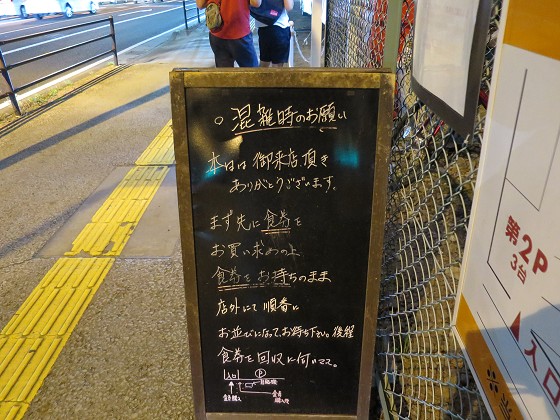 ○ 混雑時のお願い
本日は御来店頂き
ありがとうございます。
まず先に食券を
お買い求めの上
食券をお持ちのまま
店外にて順番に
お並びになってお待ち下さい。後程
食券を回収に伺います。
入口 Ⓟ
食券購入
第2P
3台
入口